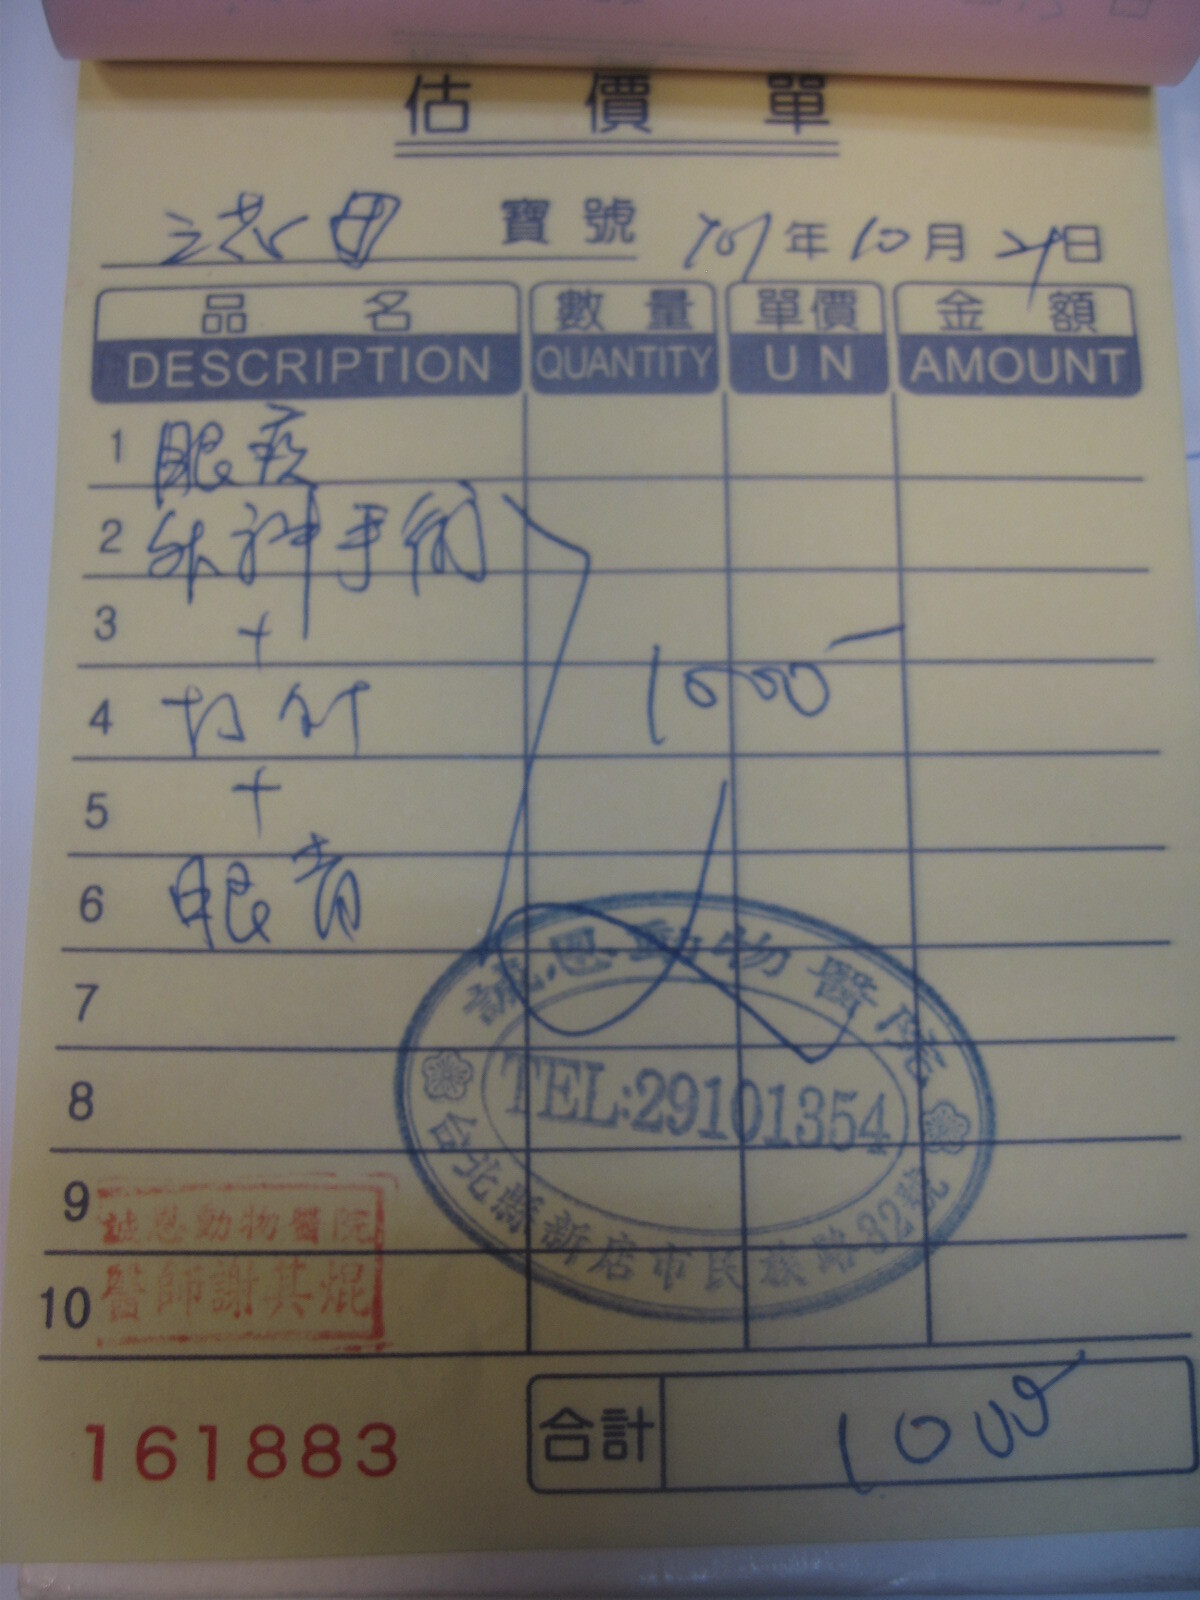 估價單
寶號 101年10月21日
品名 數量 單價 金額
DESCRIPTION QUANTITY U N AMOUNT
1 眼疾
2 外科手術
3 +
4 打針
1000
5 +
6 眼膏
7
8
9
10
誠恩動物醫院
TEL:29101354
台北縣新店市民族路32號
誠恩動物醫院
醫師謝其焜
合計 1000
161883